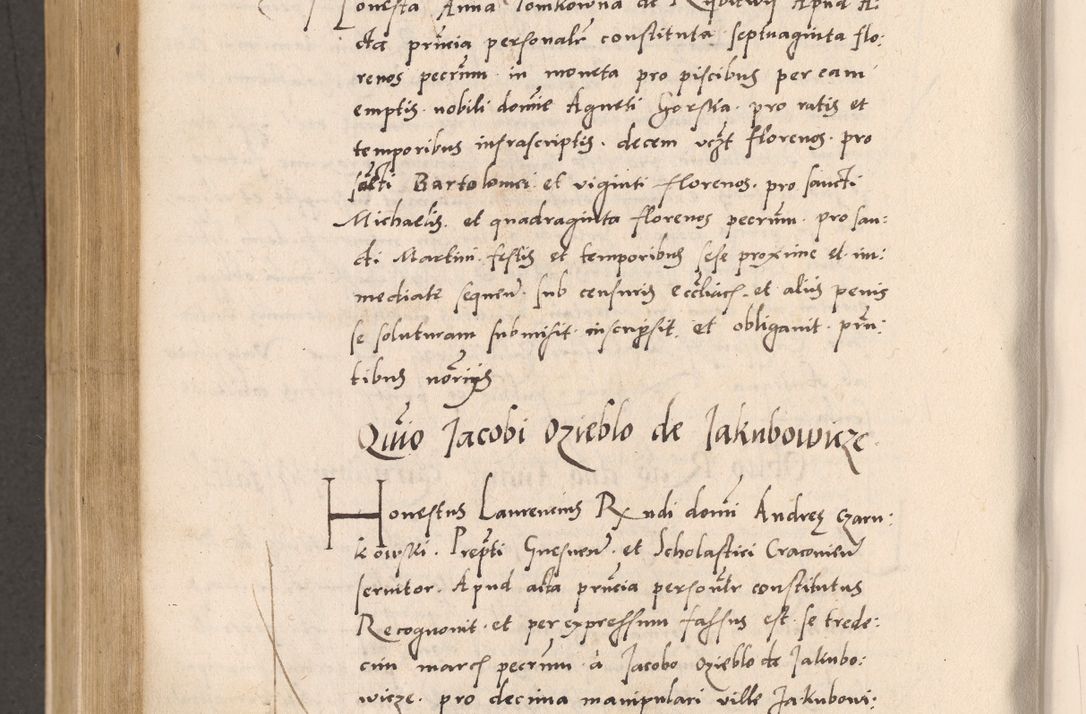 Honesta Anna Tomkowna de Apud A:
cta pñcia personalr̃ constituta septuaginta flo:
renos pecr̃um in moneta pro piscibus per eam
emptis nobili domie Agneti Gorska pro ratis et
temporibus infrascriptis. decem vcz̃t florenos pro
sãcti Bartolomei et viginti florenos. pro sancti
Michaelis. et quadraginta florenos pecr̃um. pro san:
cti Martini festis et temporibus sese proxime et im:
mediate sequeñ. sub censuris ecc̃liacz et aliis penis
se soluturam submisit inscripsit. et obligauit. pr̃n:
tibus nõriis
Quĩo Jacobi Ozieblo de Jakubowicze.
Honestus Laurencius R̃ndi domĩ Andreę Czarn:
kowski. Prep̃ti Gnesneñ. et Scholastici Cracouieñ
seruitor. Apud acta pñcia persoñlr constitutus
Recognouit. et per expressum fassus est. se trede:
cim marcz pecr̃um à Jacobo Ozieblo de Jakubo:
wicze. pro decima manipulari ville Jakubowi: